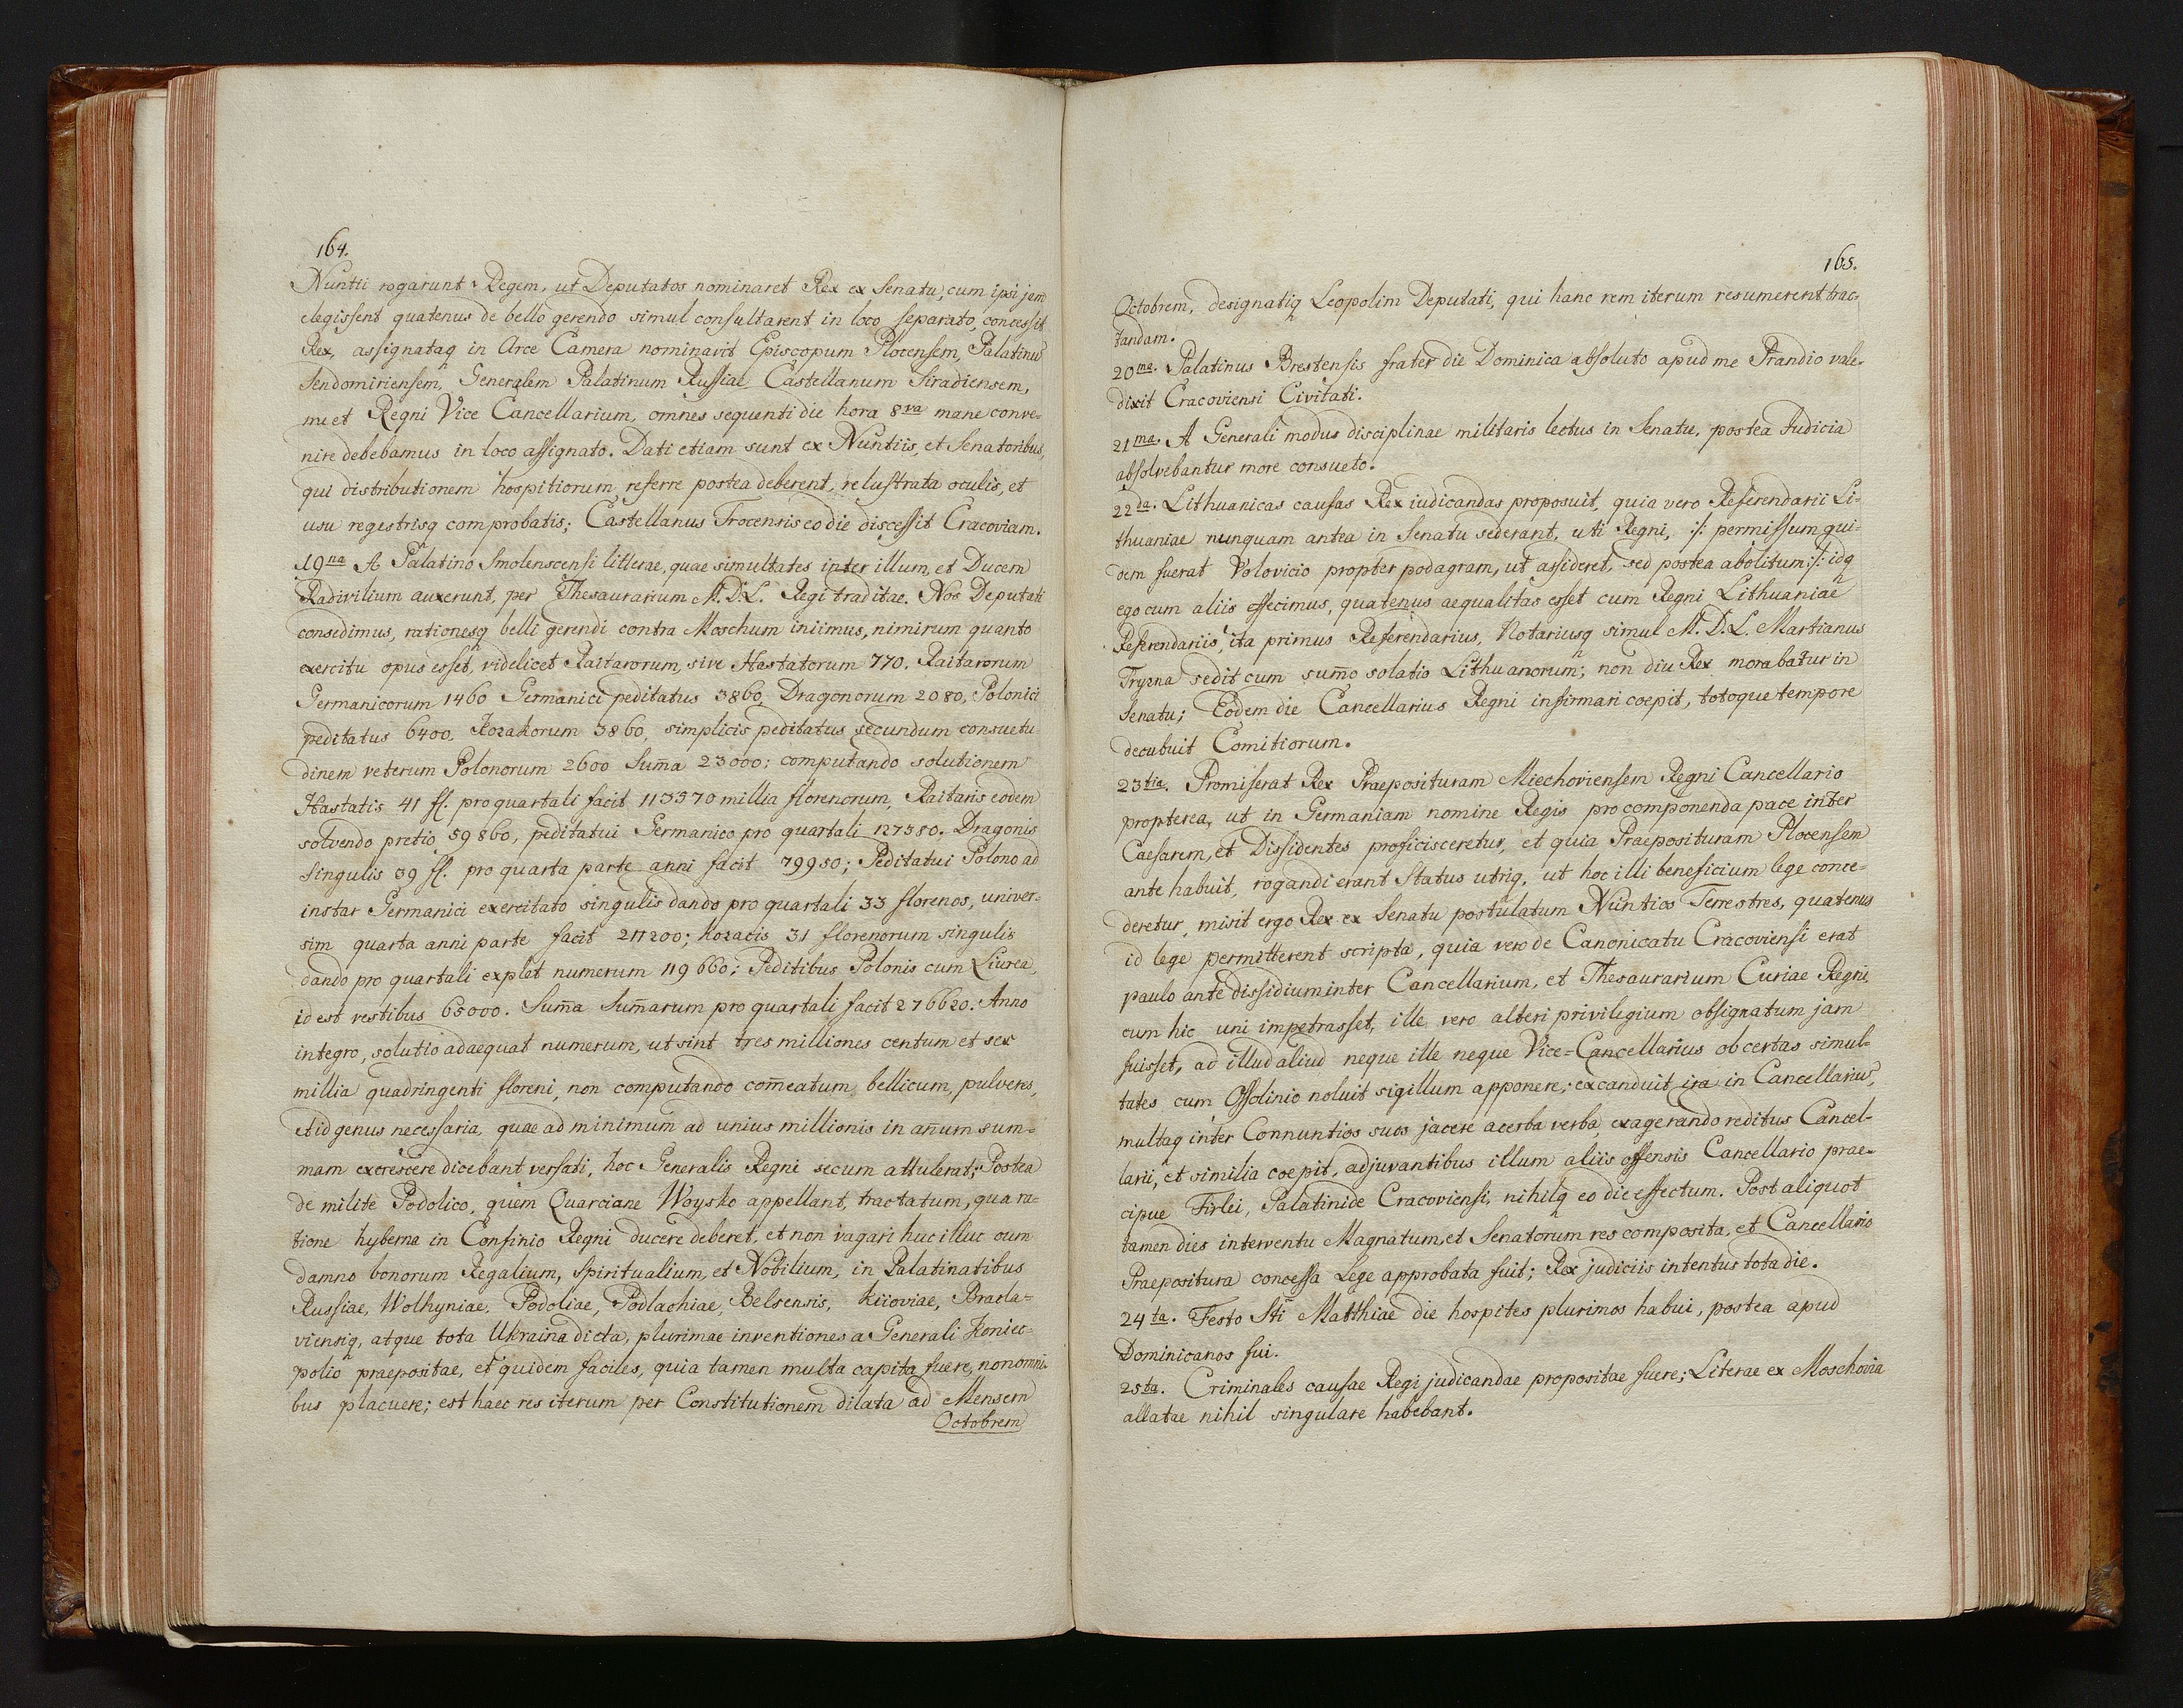 164.
Nuntii rogarunt Regem, ut Deputatos nominaret Rex ex Senatu, cum ipsi jam
elegissent quatenus de bello gerendo simul consultarent in loco separato, concessit
Rex, assignataq in Arce Camera nominavit Episcopum Plocensem, Palatinū
Sendomiriensem, Generalem Palatinum Russiae Castellanum Siradiensem,
me et Regni Vice Cancellarium, omnes sequenti die hora 8va mane conve-
nire debebamus in loco assignato. Dati etiam sunt ex Nuntiis, et Senatoribus,
qui distributionem hospitiorum referre postea deberent, re lustrata oculis, et
usu regestrisq comprobatis; Castellanus Trocensis eo die discessit Cracoviam.
19na A Palatino Smolenscensi litterae, quae simultates inter illum, et Ducem
Radivilium auxerunt, per Thesaurarium M. D. L. Regi traditae. Nos Deputati
consedimus, rationesq belli gerendi contra Moschum iniimus, nimirum quanto
exercitu opus esset, videlicet Raitarorum, sive Hastatorum 770. Raitarorum
Germanicorum 1460 Germanici peditatus 3860, Dragonorum 2080, Polonici
peditatus 6400. Kozakorum 3860, simplicis peditatus secundum consuetu
dinem veterum Polonorum 2600 Sum̄a 23000; computando solutionem
Hastatis 41 fl. pro quartali facit 113370 millia florenorum, Raitaris eodem
solvendo pretio 59860, peditatui Germanico pro quartali 127380. Dragonis
singulis 39 fl. pro quarta parte anni facit 79950; Peditatui Polono ad
instar Germanici exercitato singulis dando pro quartali 33 florenos, univer-
sim quarta anni parte facit 211200; kozacis 31 florenorum singulis
dando pro quartali explet numerum 119660; Peditibus Polonis cum Liurea,
id est vestibus 65000. Sum̄a Sum̄arum pro quartali facit 276620. Anno
integro, solutio adaequat numerum, ut sint tres milliones centum et sex
millia quadringenti floreni, non computando com̄eatum bellicum, pulveres,
et id genus necessaria, quae ad minimum ad unius millionis in an̄um sum-
mam excrescere dicebant versati, hoc Generalis Regni secum attulerat; Postea
de milite Podolico, quem Quarciane Woysko appellant, tractatum, qua ra-
tione hyberna in Confinio Regni ducere deberet, et non vagari huc illuc cum
damno bonorum Regalium, Spiritualium, et Nobilium, in Palatinatibus
Russiae, Wolhyniae, Podoliae, Podlachiae, Belsensis, Kiioviae, Bracla-
viensiq, atque tota Ukraina dicta, plurimae inventiones a Generali Koniec-
polio praepositae, et quidem faciles, quia tamen multa capita fuere, non omni-
bus placuere; est haec res iterum per Constitutionem dilata ad Mensem
Octobrem
165.
Octobrem, designatiq Leopolim Deputati, qui hanc rem iterum resumerent trac-
tandam.
20ma. Palatinus Brestensis frater die Dominica absoluto apud me Prandio vale-
dixit Cracoviensi Civitati.
21ma. A Generali modus disciplinae militaris lectus in Senatu, postea Iudicia
absolvebantur more consueto.
22da. Lithuanicas causas Rex iudicandas proposuit, quia vero Referendarii Li-
thuaniae nunquam antea in Senatu sederant, uti Regni, :/: permissum qui-
dem fuerat Volovicio propter podagram, ut assideret, sed postea abolitum :/: idq
ego cum aliis effecimus, quatenus aequalitas esset cum Regni Lithuaniae
Referendariis, ita primus Referendarius, Notariusq simul M. D. L. Martianus
Tryzna sedit cum sum̄o solatio Lithuanorum; non diu Rex morabatur in
Senatu; Eodem die Cancellarius Regni infirmari coepit, totoque tempore
decubuit Comitiorum.
23tia. Promiserat Rex Praeposituram Miechoviensem Regni Cancellario
propterea, ut in Germaniam nomine Regis pro componenda pace inter
Caesarem, et Dissidentes proficisceretur, et quia Praeposituram Plocensem
ante habuit, rogandi erant Status utriq, ut hoc illi beneficium lege conce-
deretur, misit ergo Rex ex Senatu postulatum Nuntios Terrestres, quatenus
id lege permitterent scripta, quia vero de Canonicatu Cracoviensi erat
paulo ante dissidium inter Cancellarium, et Thesaurarium Curiae Regni,
cum hic uni impetrasset, ille vero alteri privilegium obsignatum jam
fuisset, ad illud aliud neque ille neque Vice-Cancellarius ob certas simul-
tates cum Ossolinio noluit sigillum apponere; excanduit ira in Cancellariū,
multaq inter Connuntios suos jacere acerba verba, exagerando reditus Cancel-
larii, et similia coepit, adjuvantibus illum aliis offensis Cancellario prae-
cipue Firlei, Palatinide Cracoviensi, nihilq eo die effectum. Post aliquot
tamen dies interventu Magnatum, et Senatorum res composita, et Cancellario
Praepositura concessa Lege approbata fuit; Rex judiciis intentus tota die.
24ta. Festo Sti Matthiae die hospites plurimos habui, postea apud
Dominicanos fui.
25ta. Criminales causae Regi judicandae propositae fuere; Literae ex Moschovia
allatae nihil singulare habebant.